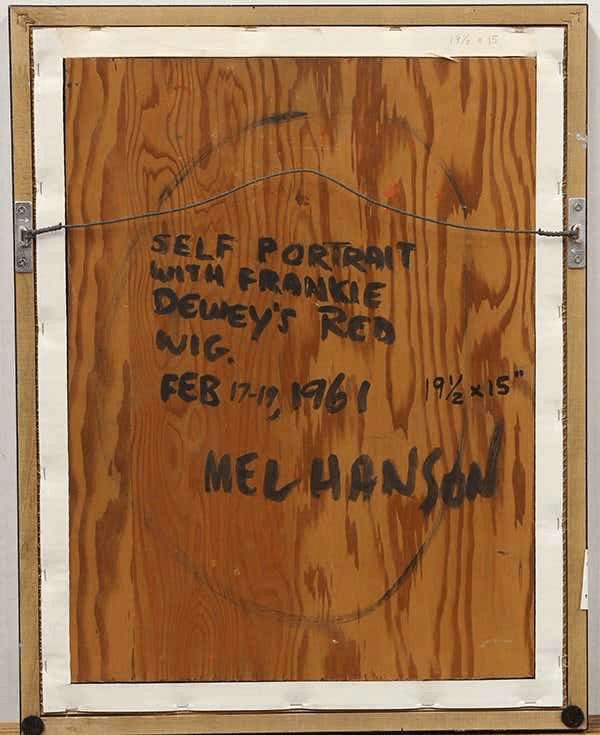 19 1/2 x 15
SELF PORTRAIT
WITH FRANKIE
DEWEY'S RED
WIG.
FEB 17-19, 1961 19 1/2 x 15"
MEL HANSON